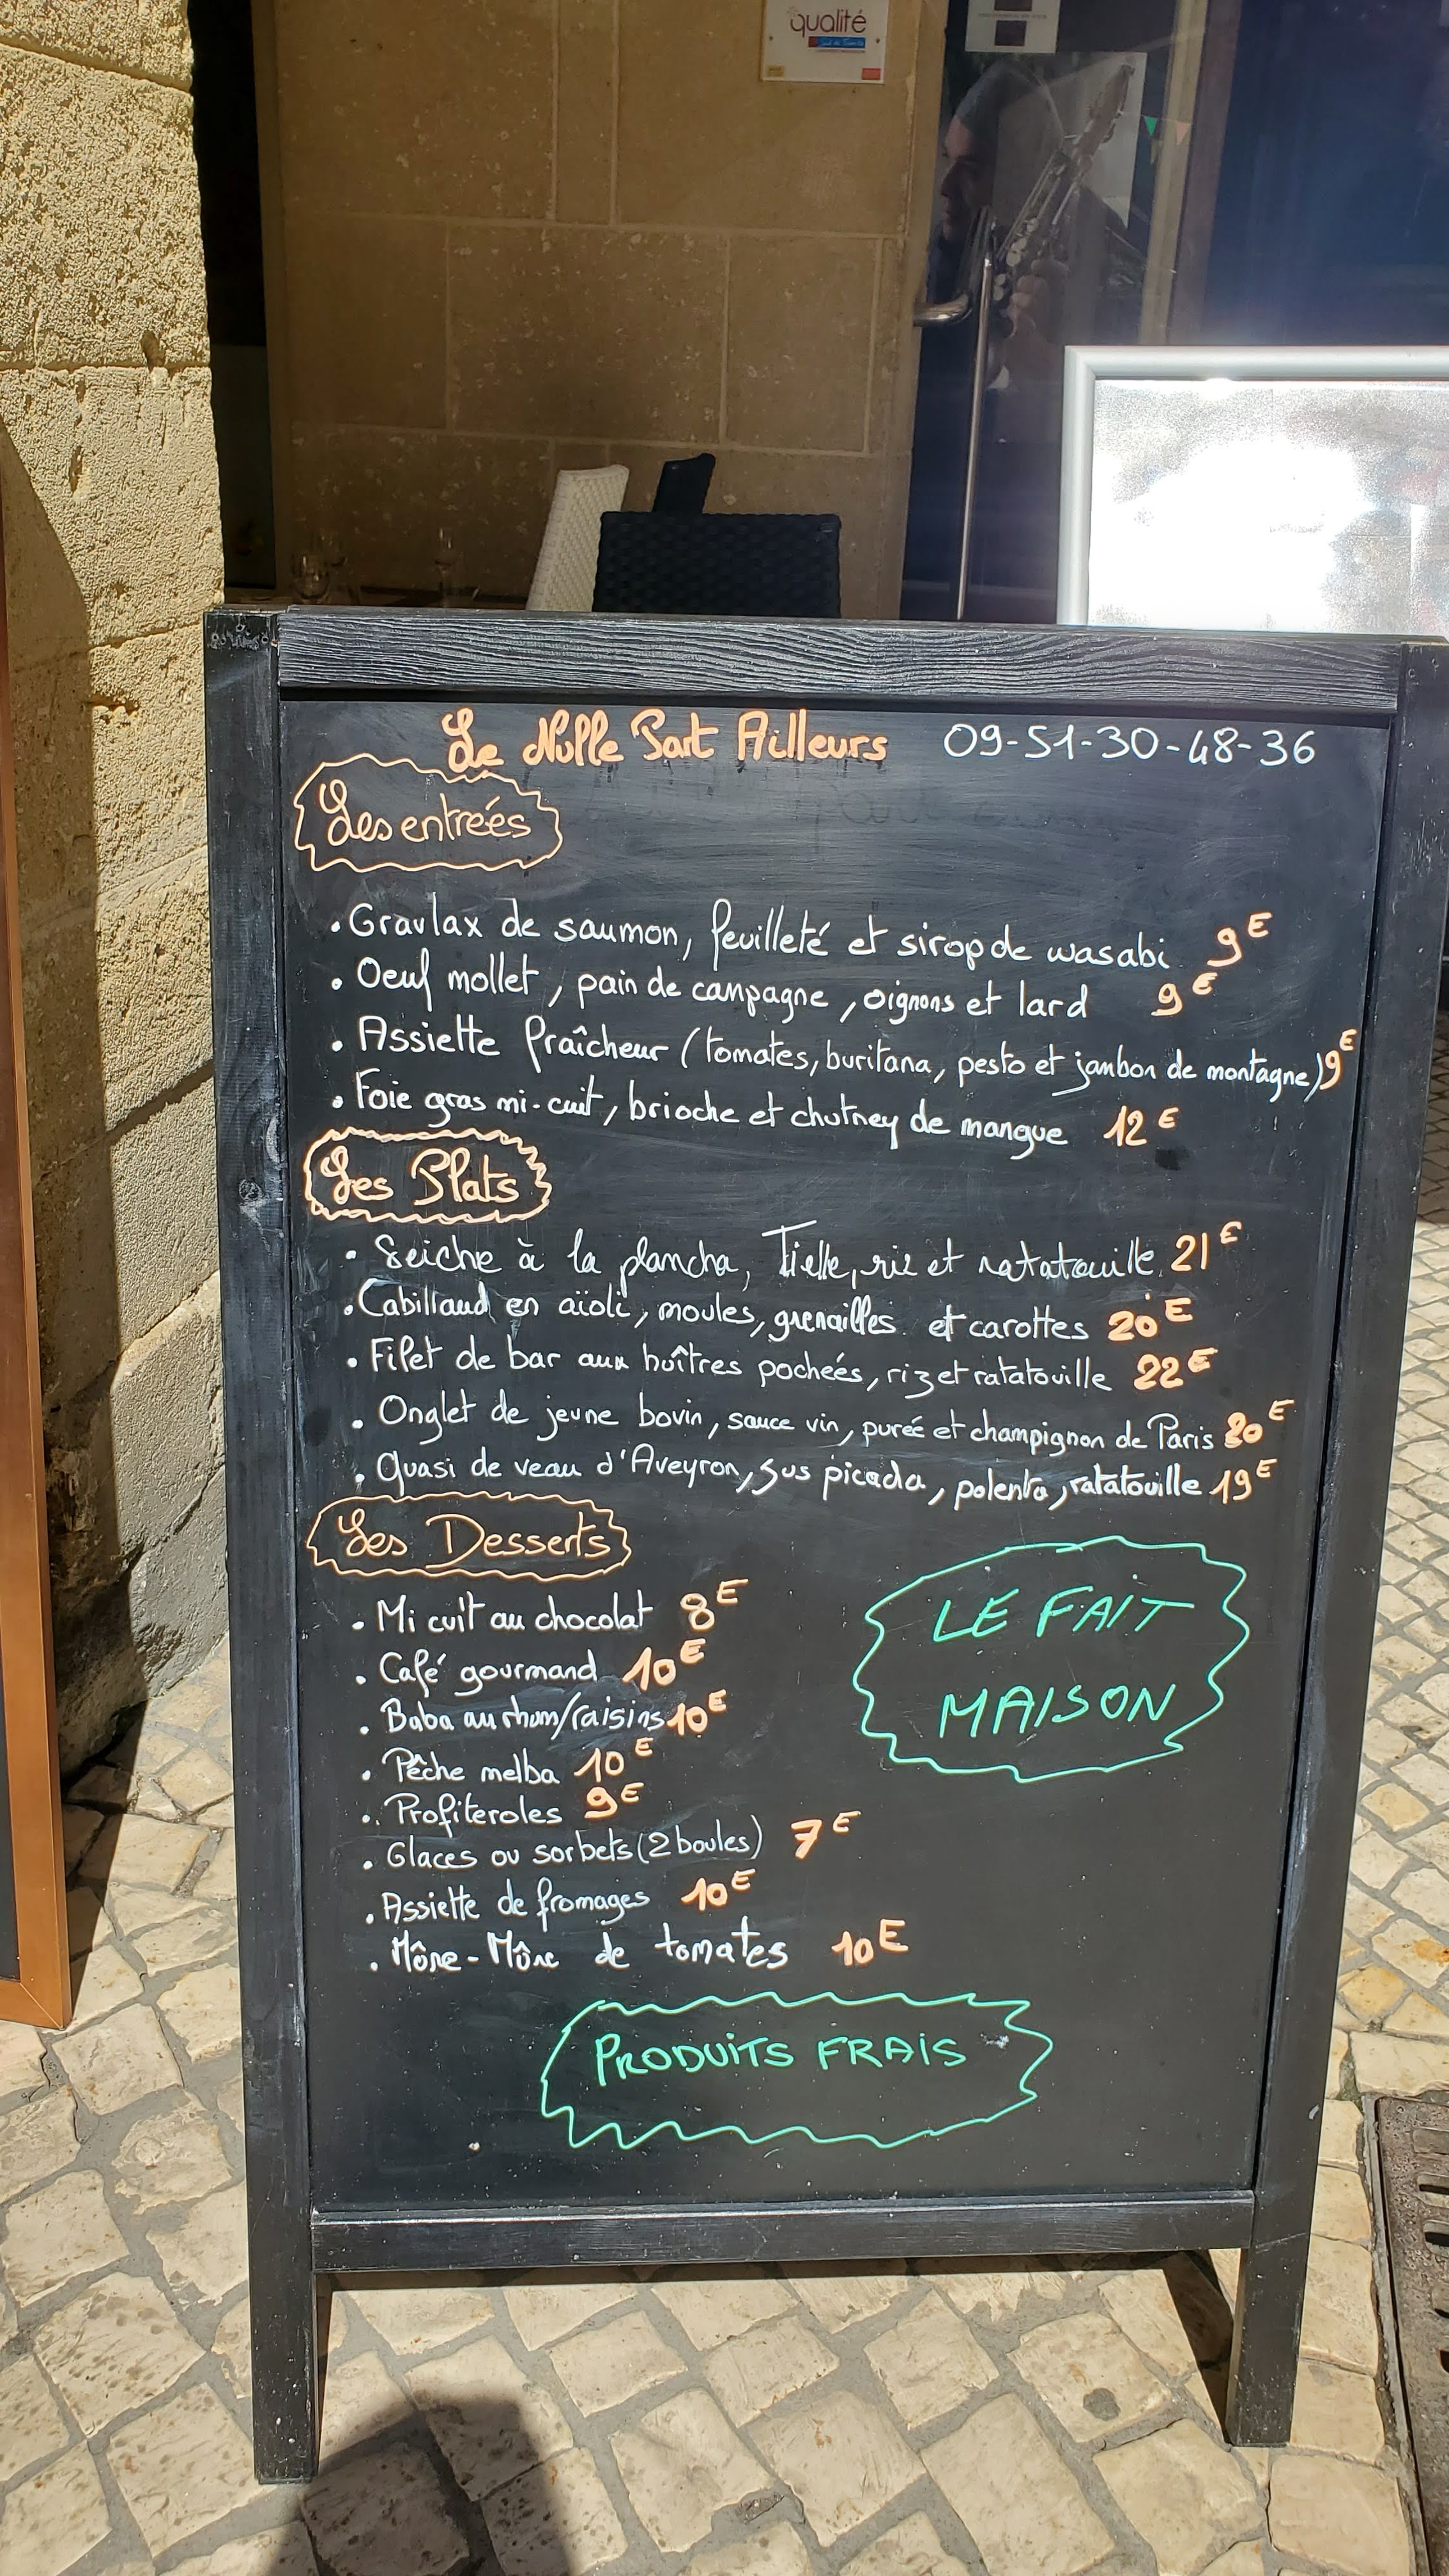 qualité
Le Nulle Part Ailleurs 09-51-30-48-36
Les entreés
. Gravlax de saumon, feuilleté et sirop de wasabi 9E
. Oeuf mollet, pain de campagne, oignons et lard 9E
. Assiette fraîcheur (tomates, buritana, pesto et jambon de montagne) 9E
. Foie gras mi-cuit, brioche et chutney de mangue 12E
Les Plats
. Seiche à la plancha, Tielle, riz et ratatouille 21E
. Cabillaud en aïoli, moules, grenailles et carottes 20E
. Filet de bar aux huîtres pocheés, riz et ratatouille 22E
. Onglet de jeune bovin, sauce vin, pureé et champignon de Paris 20E
. Quasi de veau d'Aveyron, jus picada, polenta, ratatouille 19E
Les Desserts
. Mi cuit au chocolat 8E
. Café gourmand 10E
. Baba au rhum/raisins 10E
. Pêche melba 10E
. Profiteroles 9E
. Glaces ou sorbets (2 boules) 7E
. Assiette de fromages 10E
. de tomates 10E
LE FAIT
MAISON
PRODUITS FRAIS